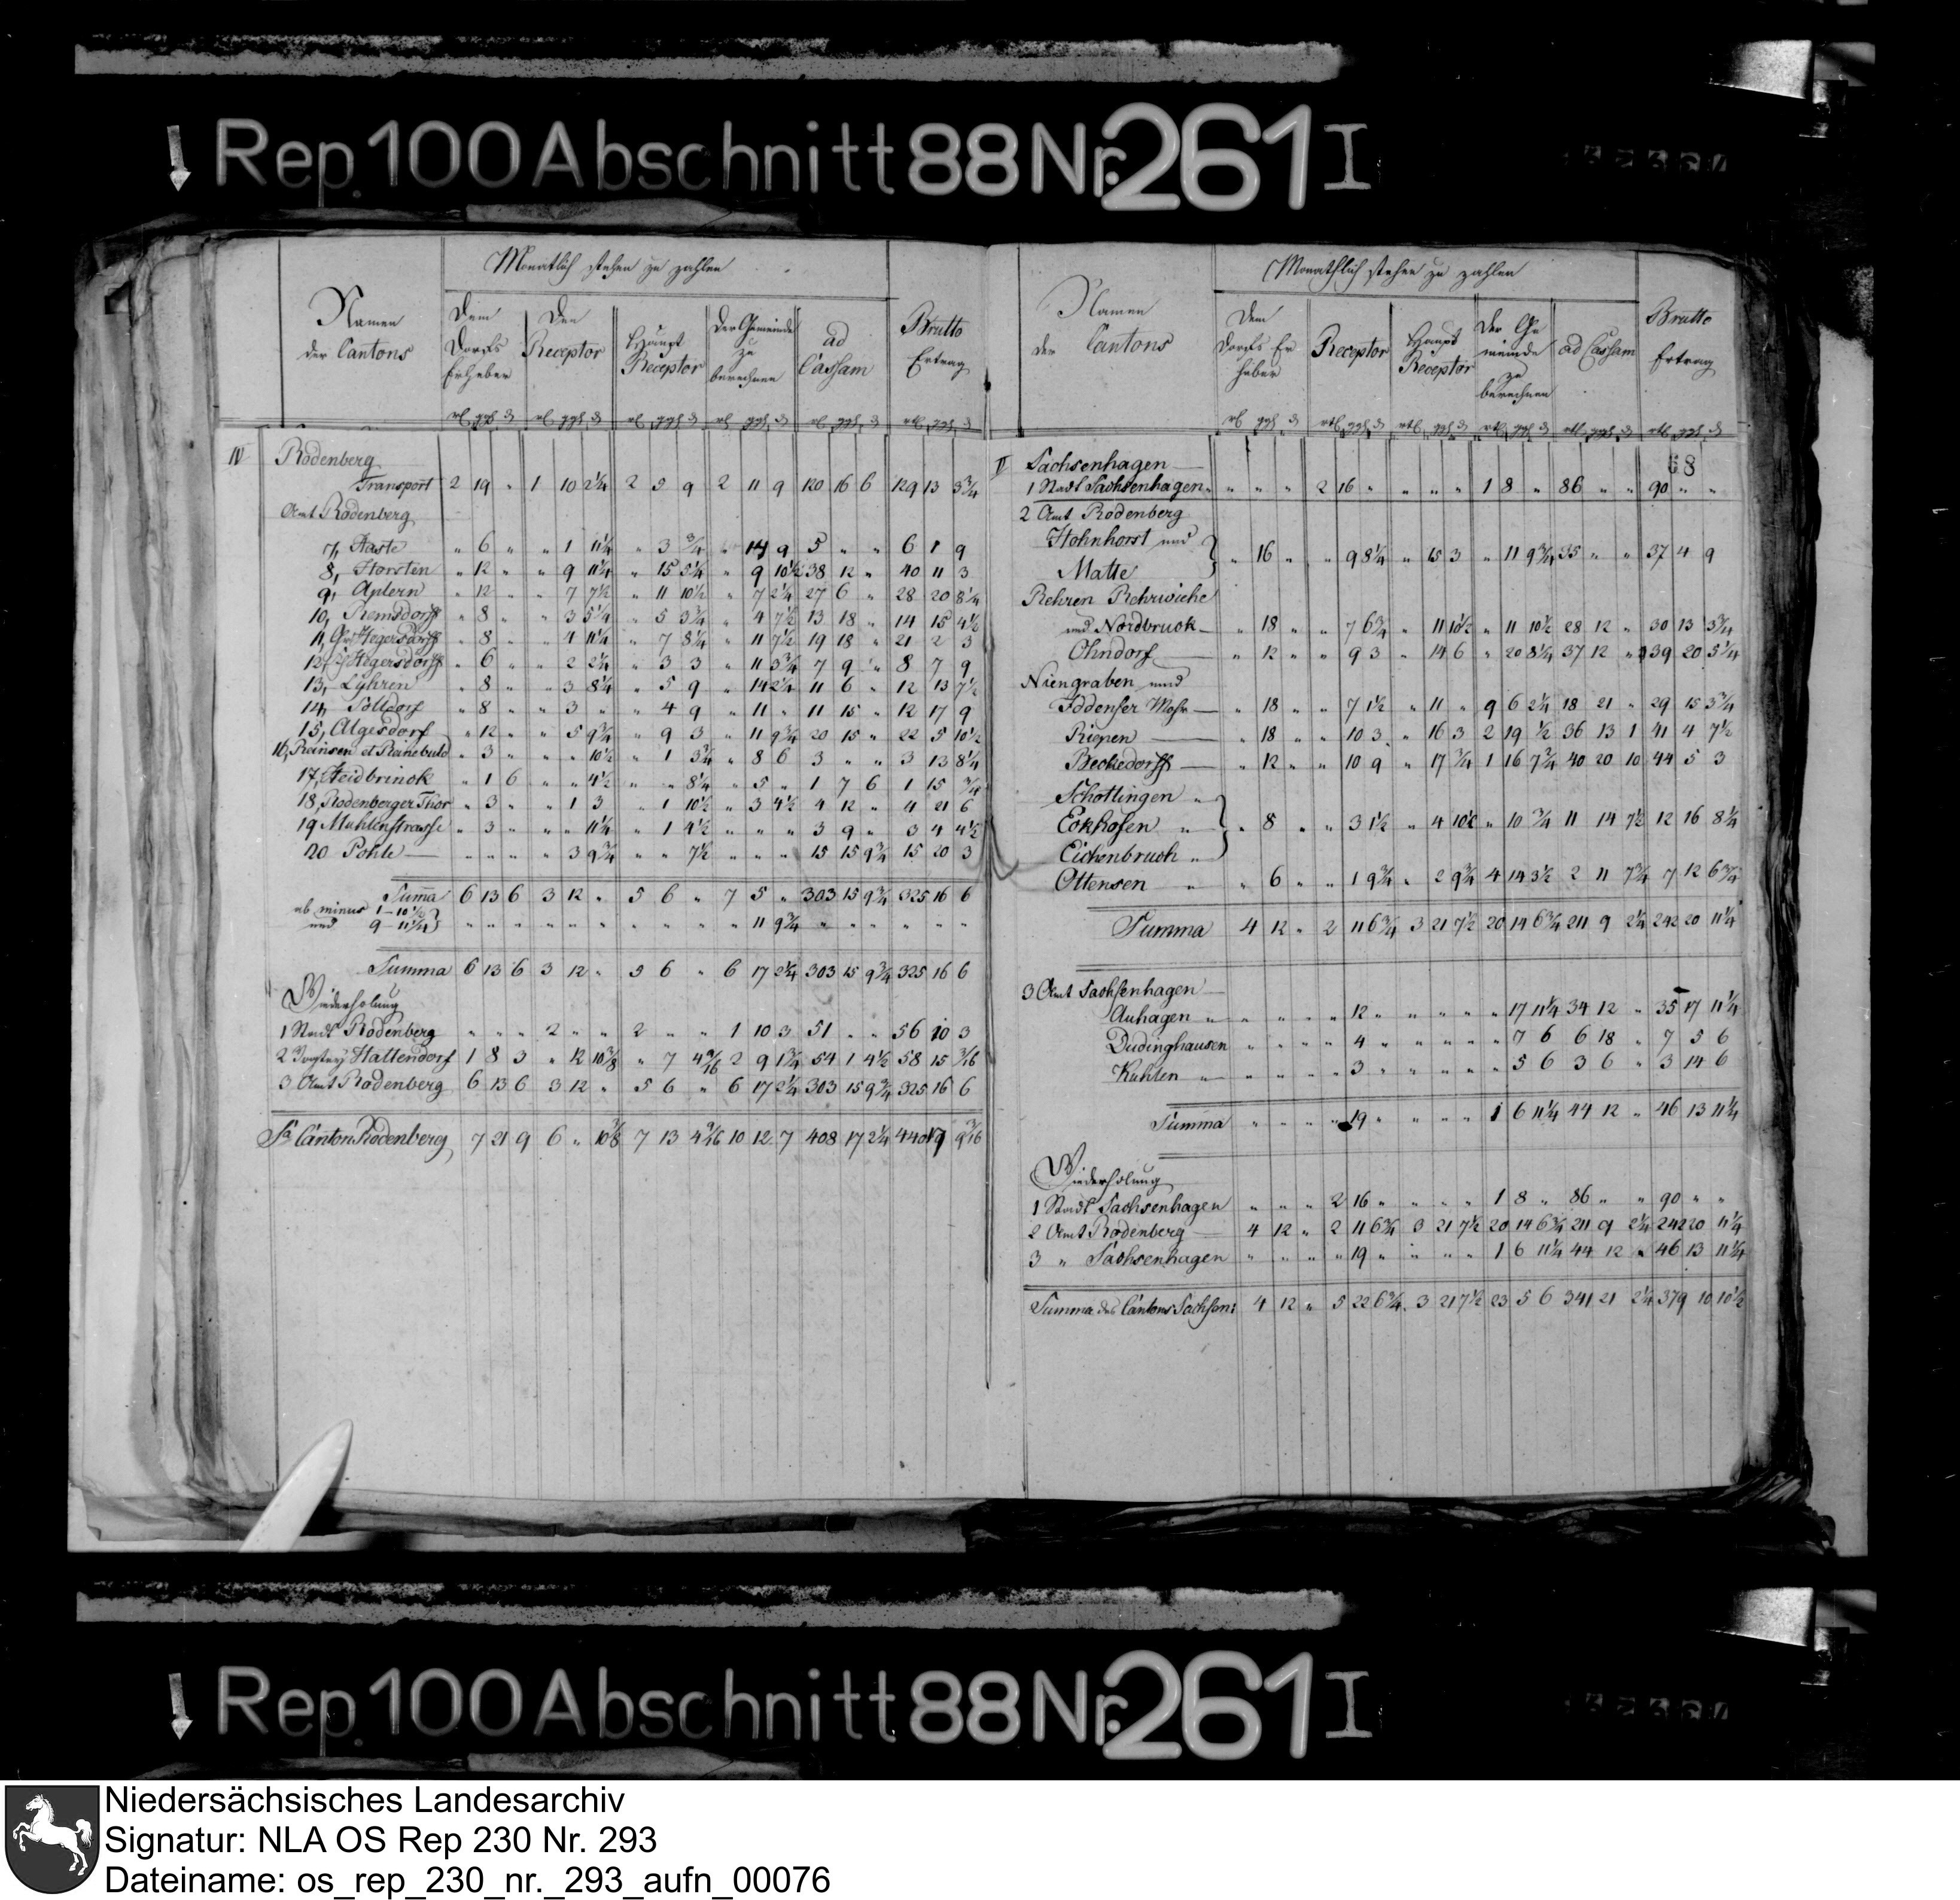 Rep. 100 Abschnitt 88 Nr. 261 I
Monatlich stehen zu zahlen
Namen der Cantons
Dem Dorfs Erheber
Den Receptor
Haupt Receptor
Der Gemeinde zu berechnen
ad Cassam
Brutto Ertrag
rl ggl ₰ rl ggl ₰ rl ggl ₰ rl ggl ₰ rl ggl ₰ rtl ggl ₰
IV Rodenberg
Transport 2 19 " 1 10 2¼ 2 5 9 2 11 9 120 16 6 129 13 3¾
Amt Rodenberg
7, Haste " 6 " " 1 11¼ " 3 ¾ " 14 9 5 " " 6 1 9
8, Horsten " 12 " " 9 11¼ " 15 5¼ " 9 10½ 38 12 " 40 11 3
9, Aplern " 12 " " 7 7½ " 11 10½ " 7 2¼ 27 6 " 28 20 8¼
10, Remsdorff " 8 " " 3 5¼ " 5 3¾ " 4 7½ 13 18 " 14 15 4½
11, Gr. Hegersdorff " 8 " " 4 11¼ " 7 8¼ " 11 7½ 19 18 " 21 2 3
12, Kl. Hegersdorff " 6 " " 2 2¼ " 3 3 " 11 3¾ 7 9 " 8 7 9
13, Lyhren " 8 " " 3 8¼ " 5 9 " 14 2¼ 11 6 " 12 13 7½
14, Solldorf " 8 " " 3 " " 4 9 " 11 " 11 15 " 12 17 9
15, Algesdorf " 12 " " 5 9¾ " 9 3 " 11 9¾ 20 15 " 22 5 10½
16, Reinsen et Reinebuld " 3 " " " 10½ " 1 3¾ " 8 6 3 " " 3 13 8¼
17, Heidbrinck " 1 6 " " 4½ " " 8¼ " 5 " 1 7 6 1 15 ¾
18, Rodenberger Thor " 3 " " 1 3 " 1 10½ " 3 4½ 4 12 " 4 21 6
19 Muhlenstrasse " 3 " " " 11¼ " 1 4½ " " " 3 9 " 3 4 4½
20 Pohle " " " " 3 9¾ " " 7½ " " " 15 15 9¾ 15 20 3
Summa 6 13 6 3 12 " 5 6 " 7 5 " 303 15 9¾ 325 16 6
ab minus 1 – 10½
und 9 – 11¼ " " " " " " " " " " 11 9¾ " " " " " "
Summa 6 13 6 3 12 " 5 6 " 6 17 2¼ 303 15 9¾ 325 16 6
Wiederholung
1 Stadt Rodenberg " " " 2 " " 2 " " 1 10 3 51 " " 56 10 3
2 Vogtey Hattendorf 1 8 3 " 12 10⅜ " 7 4 9/16 2 9 1¾ 54 1 4½ 58 15 3/16
3 Amt Rodenberg 6 13 6 3 12 " 5 6 " 6 17 2¼ 303 15 9¾ 325 16 6
Sa Canton Rodenberg 7 21 9 6 " 10⅜ 7 13 4 9/16 10 12 7 408 17 2¼ 440 17 9 3/16
Monathlich stehen zu zahlen
Namen der Cantons
Dem Dorfs Erheber
Receptor
Haupt Receptor
Der Gemeinde zu berechnen
ad Cassam
Brutto Ertrag
rl ggl ₰ rtl ggl ₰ rtl ggl ₰ rtl ggl ₰ rtl ggl ₰ rtl ggl ₰
68
V Sachsenhagen
1 Stadt Sachsenhagen " " " 2 16 " " " " 1 8 " 86 " " 90 " "
2 Amt Rodenberg
Hohnhorst und
Matte " 16 " " 9 8¼ " 15 3 " 11 9¾ 35 " " 37 4 9
Rehren Rehrwiehe
und Nordbruch " 18 " " 7 6¾ " 11 10½ " 11 10½ 28 12 " 30 13 3¾
Ohndorf " 12 " " 9 3 " 14 6 " 20 8¼ 37 12 " 39 20 5¼
Niengraben und
Iddenser Mohr " 18 " " 7 1½ " 11 " 9 6 2¼ 18 21 " 29 15 3¾
Riepen " 18 " " 10 3 " 16 3 2 19 ½ 36 13 1 41 4 7½
Beckedorff " 12 " " 10 9 " 17 ¾ 1 16 7¾ 40 20 10 44 5 3
Schottlingen "
Eckhofen " " 8 " " 3 1½ " 4 10½ " 10 ¾ 11 14 7½ 12 16 8¼
Eichenbruch "
Ottensen " " 6 " " 1 9¾ " 2 9¾ 4 14 3½ 2 11 7¾ 7 12 6¾
Summa 4 12 " 2 11 6¾ 3 21 7½ 20 14 6¾ 211 9 2¼ 242 20 11¼
3 Amt Sachsenhagen
Auhagen " " " " " 12 " " " " " 17 11¼ 34 12 " 35 17 11¼
Dudinghausen " " " " 4 " " " " " 7 6 6 18 " 7 5 6
Kuhlen " " " " " 3 " " " " " 5 6 3 6 " 3 14 6
Summa " " " " 19 " " " " 1 6 11¼ 44 12 " 46 13 11¼
Wiederholung
1 Stadt Sachsenhagen " " " 2 16 " " " " 1 8 " 86 " " 90 " "
2 Amt Rodenberg 4 12 " 2 11 6¾ 3 21 7½ 20 14 6¾ 211 9 2¼ 242 20 11¼
3 " Sachsenhagen " " " " 19 " " " " 1 6 11¼ 44 12 " 46 13 11¼
Summa des Cantons Sachsen: 4 12 " 5 22 6¾ 3 21 7½ 23 5 6 341 21 2¼ 379 10 10½
Rep. 100 Abschnitt 88 Nr. 261 I
Niedersächsisches Landesarchiv
Signatur: NLA OS Rep 230 Nr. 293
Dateiname: os_rep_230_nr._293_aufn_00076